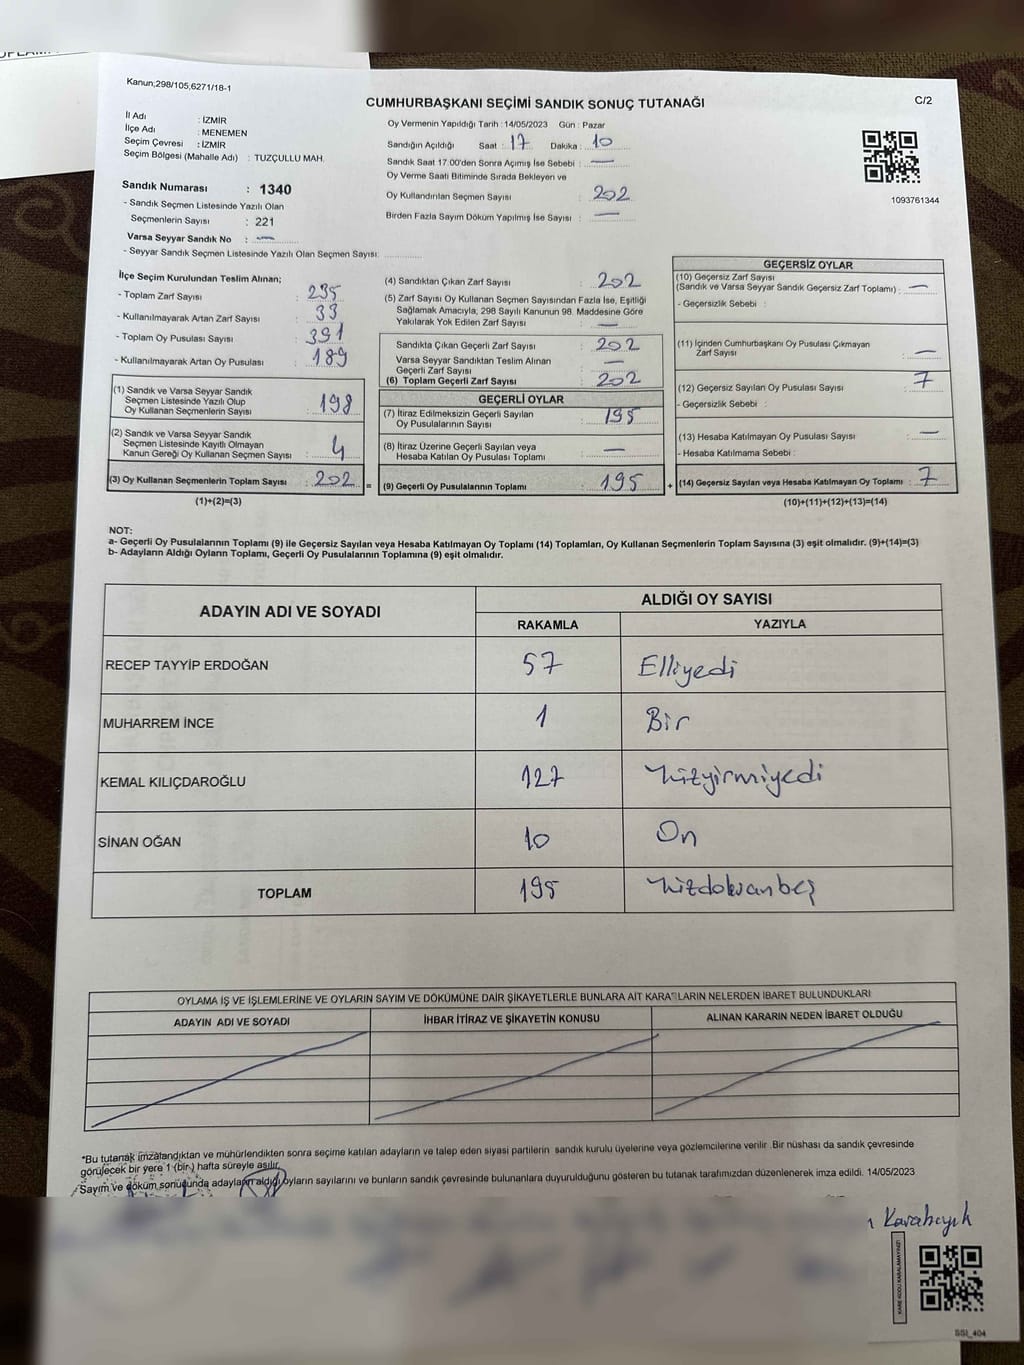 Kanun;298/105,6271/18-1
CUMHURBAŞKANI SEÇİMİ SANDIK SONUÇ TUTANAĞI
C/2
İl Adı : İZMİR
İlçe Adı : MENEMEN
Seçim Çevresi : İZMİR
Seçim Bölgesi (Mahalle Adı) : TUZÇULLU MAH.
Oy Vermenin Yapıldığı Tarih : 14/05/2023 Gün : Pazar
Sandığın Açıldığı Saat : 17 Dakika : 10
Sandık Saat 17:00'den Sonra Açımış İse Sebebi : —
Oy Verme Saati Bitiminde Sırada Bekleyen ve
Oy Kullandırılan Seçmen Sayısı : 202
Birden Fazla Sayım Döküm Yapılmış İse Sayısı : —
1093761344
Sandık Numarası : 1340
- Sandık Seçmen Listesinde Yazılı Olan
Seçmenlerin Sayısı : 221
Varsa Seyyar Sandık No : —
- Seyyar Sandık Seçmen Listesinde Yazılı Olan Seçmen Sayısı:
İlçe Seçim Kurulundan Teslim Alınan;
- Toplam Zarf Sayısı : 235
- Kullanılmayarak Artan Zarf Sayısı : 33
- Toplam Oy Pusulası Sayısı : 391
- Kullanılmayarak Artan Oy Pusulası : 189
(1) Sandık ve Varsa Seyyar Sandık
Seçmen Listesinde Yazılı Olup
Oy Kullanan Seçmenlerin Sayısı : 198
(2) Sandık ve Varsa Seyyar Sandık
Seçmen Listesinde Kayıtlı Olmayan
Kanun Gereği Oy Kullanan Seçmen Sayısı : 4
(3) Oy Kullanan Seçmenlerin Toplam Sayısı : 202 =
(1)+(2)=(3)
(4) Sandıktan Çıkan Zarf Sayısı : 202
(5) Zarf Sayısı Oy Kullanan Seçmen Sayısından Fazla İse, Eşitliği
Sağlamak Amacıyla; 298 Sayılı Kanunun 98. Maddesine Göre
Yakılarak Yok Edilen Zarf Sayısı : —
Sandıkta Çıkan Geçerli Zarf Sayısı : 202
Varsa Seyyar Sandıktan Teslim Alınan
Geçerli Zarf Sayısı : —
(6) Toplam Geçerli Zarf Sayısı : 202
GEÇERLİ OYLAR
(7) İtiraz Edilmeksizin Geçerli Sayılan
Oy Pusulalarının Sayısı : 195
(8) İtiraz Üzerine Geçerli Sayılan veya
Hesaba Katılan Oy Pusulası Toplamı : —
(9) Geçerli Oy Pusulalarının Toplamı : 195 +
GEÇERSİZ OYLAR
(10) Geçersiz Zarf Sayısı
(Sandık ve Varsa Seyyar Sandık Geçersiz Zarf Toplamı) : —
- Geçersizlik Sebebi :
(11) İçinden Cumhurbaşkanı Oy Pusulası Çıkmayan
Zarf Sayısı : —
(12) Geçersiz Sayılan Oy Pusulası Sayısı : 7
- Geçersizlik Sebebi :
(13) Hesaba Katılmayan Oy Pusulası Sayısı : —
- Hesaba Katılmama Sebebi :
(14) Geçersiz Sayılan veya Hesaba Katılmayan Oy Toplamı : 7
(10)+(11)+(12)+(13)=(14)
NOT:
a- Geçerli Oy Pusulalarının Toplamı (9) ile Geçersiz Sayılan veya Hesaba Katılmayan Oy Toplamı (14) Toplamları, Oy Kullanan Seçmenlerin Toplam Sayısına (3) eşit olmalıdır. (9)+(14)=(3)
b- Adayların Aldığı Oyların Toplamı, Geçerli Oy Pusulalarının Toplamına (9) eşit olmalıdır.
ADAYIN ADI VE SOYADI ALDIĞI OY SAYISI
RAKAMLA YAZIYLA
RECEP TAYYİP ERDOĞAN 57 Elliyedi
MUHARREM İNCE 1 Bir
KEMAL KILIÇDAROĞLU 127 Yüzyirmiyedi
SİNAN OĞAN 10 On
TOPLAM 195 Yüzdoksanbeş
OYLAMA İŞ VE İŞLEMLERİNE VE OYLARIN SAYIM VE DÖKÜMÜNE DAİR ŞİKAYETLERLE BUNLARA AİT KARARLARIN NELERDEN İBARET BULUNDUKLARI
ADAYIN ADI VE SOYADI İHBAR İTİRAZ VE ŞİKAYETİN KONUSU ALINAN KARARIN NEDEN İBARET OLDUĞU
*Bu tutanak imzalandıktan ve mühürlendikten sonra seçime katılan adayların ve talep eden siyasi partilerin sandık kurulu üyelerine veya gözlemcilerine verilir. Bir nüshası da sandık çevresinde
görülecek bir yere 1 (bir) hafta süreyle asılır.
Sayım ve döküm sonuçunda adayların aldığı oyların sayılarını ve bunların sandık çevresinde bulunanlara duyurulduğunu gösteren bu tutanak tarafımızdan düzenlenerek imza edildi. 14/05/2023
Karabıyık
KARE KODU KARALAMAYINIZ!
SSI_404